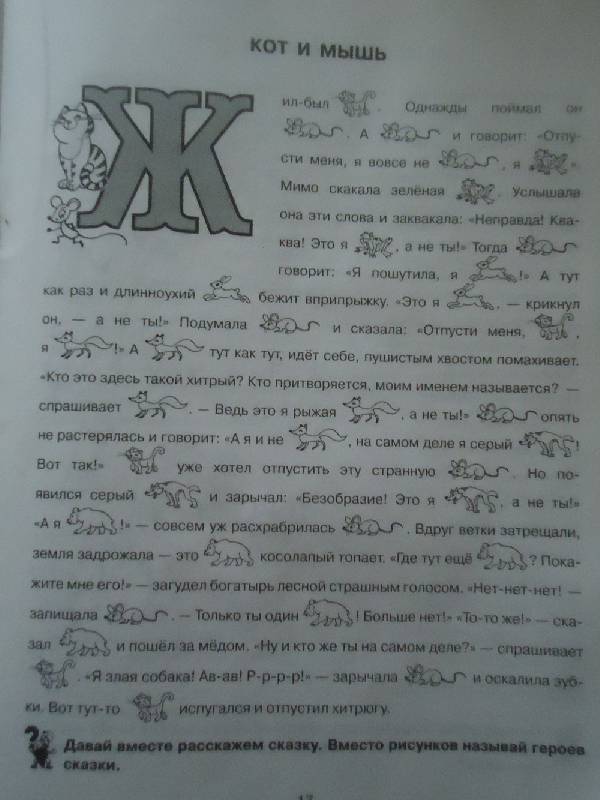 КОТ И МЫШЬ
Ж
ил-был . Однажды поймал он
. А и говорит: «Отпу-
сти меня, я вовсе не , я ».
Мимо скакала зелёная . Услышала
она эти слова и заквакала: «Неправда! Ква-
ква! Это я , а не ты!» Тогда
говорит: «Я пошутила, я !» А тут
как раз и длинноухий бежит вприпрыжку. «Это я , — крикнул
он, — а не ты!» Подумала и сказала: «Отпусти меня, ,
я !» А тут как тут, идёт себе, пушистым хвостом помахивает.
«Кто это здесь такой хитрый? Кто притворяется, моим именем называется? —
спрашивает . — Ведь это я рыжая , а не ты!» опять
не растерялась и говорит: «А я и не , на самом деле я серый !
Вот так!» уже хотел отпустить эту странную . Но по-
явился серый и зарычал: «Безобразие! Это я , а не ты!»
«А я !» — совсем уж расхрабрилась . Вдруг ветки затрещали,
земля задрожала — это косолапый топает. «Где тут ещё ? Пока-
жите мне его!» — загудел богатырь лесной страшным голосом. «Нет-нет-нет! —
запищала . — Только ты один ! Больше нет!» «То-то же!» — ска-
зал и пошёл за мёдом. «Ну и кто же ты на самом деле?» — спрашивает
. «Я злая собака! Ав-ав! Р-р-р-р!» — зарычала и оскалила зуб-
ки. Вот тут-то испугался и отпустил хитрюгу.
Давай вместе расскажем сказку. Вместо рисунков называй героев
сказки.
17